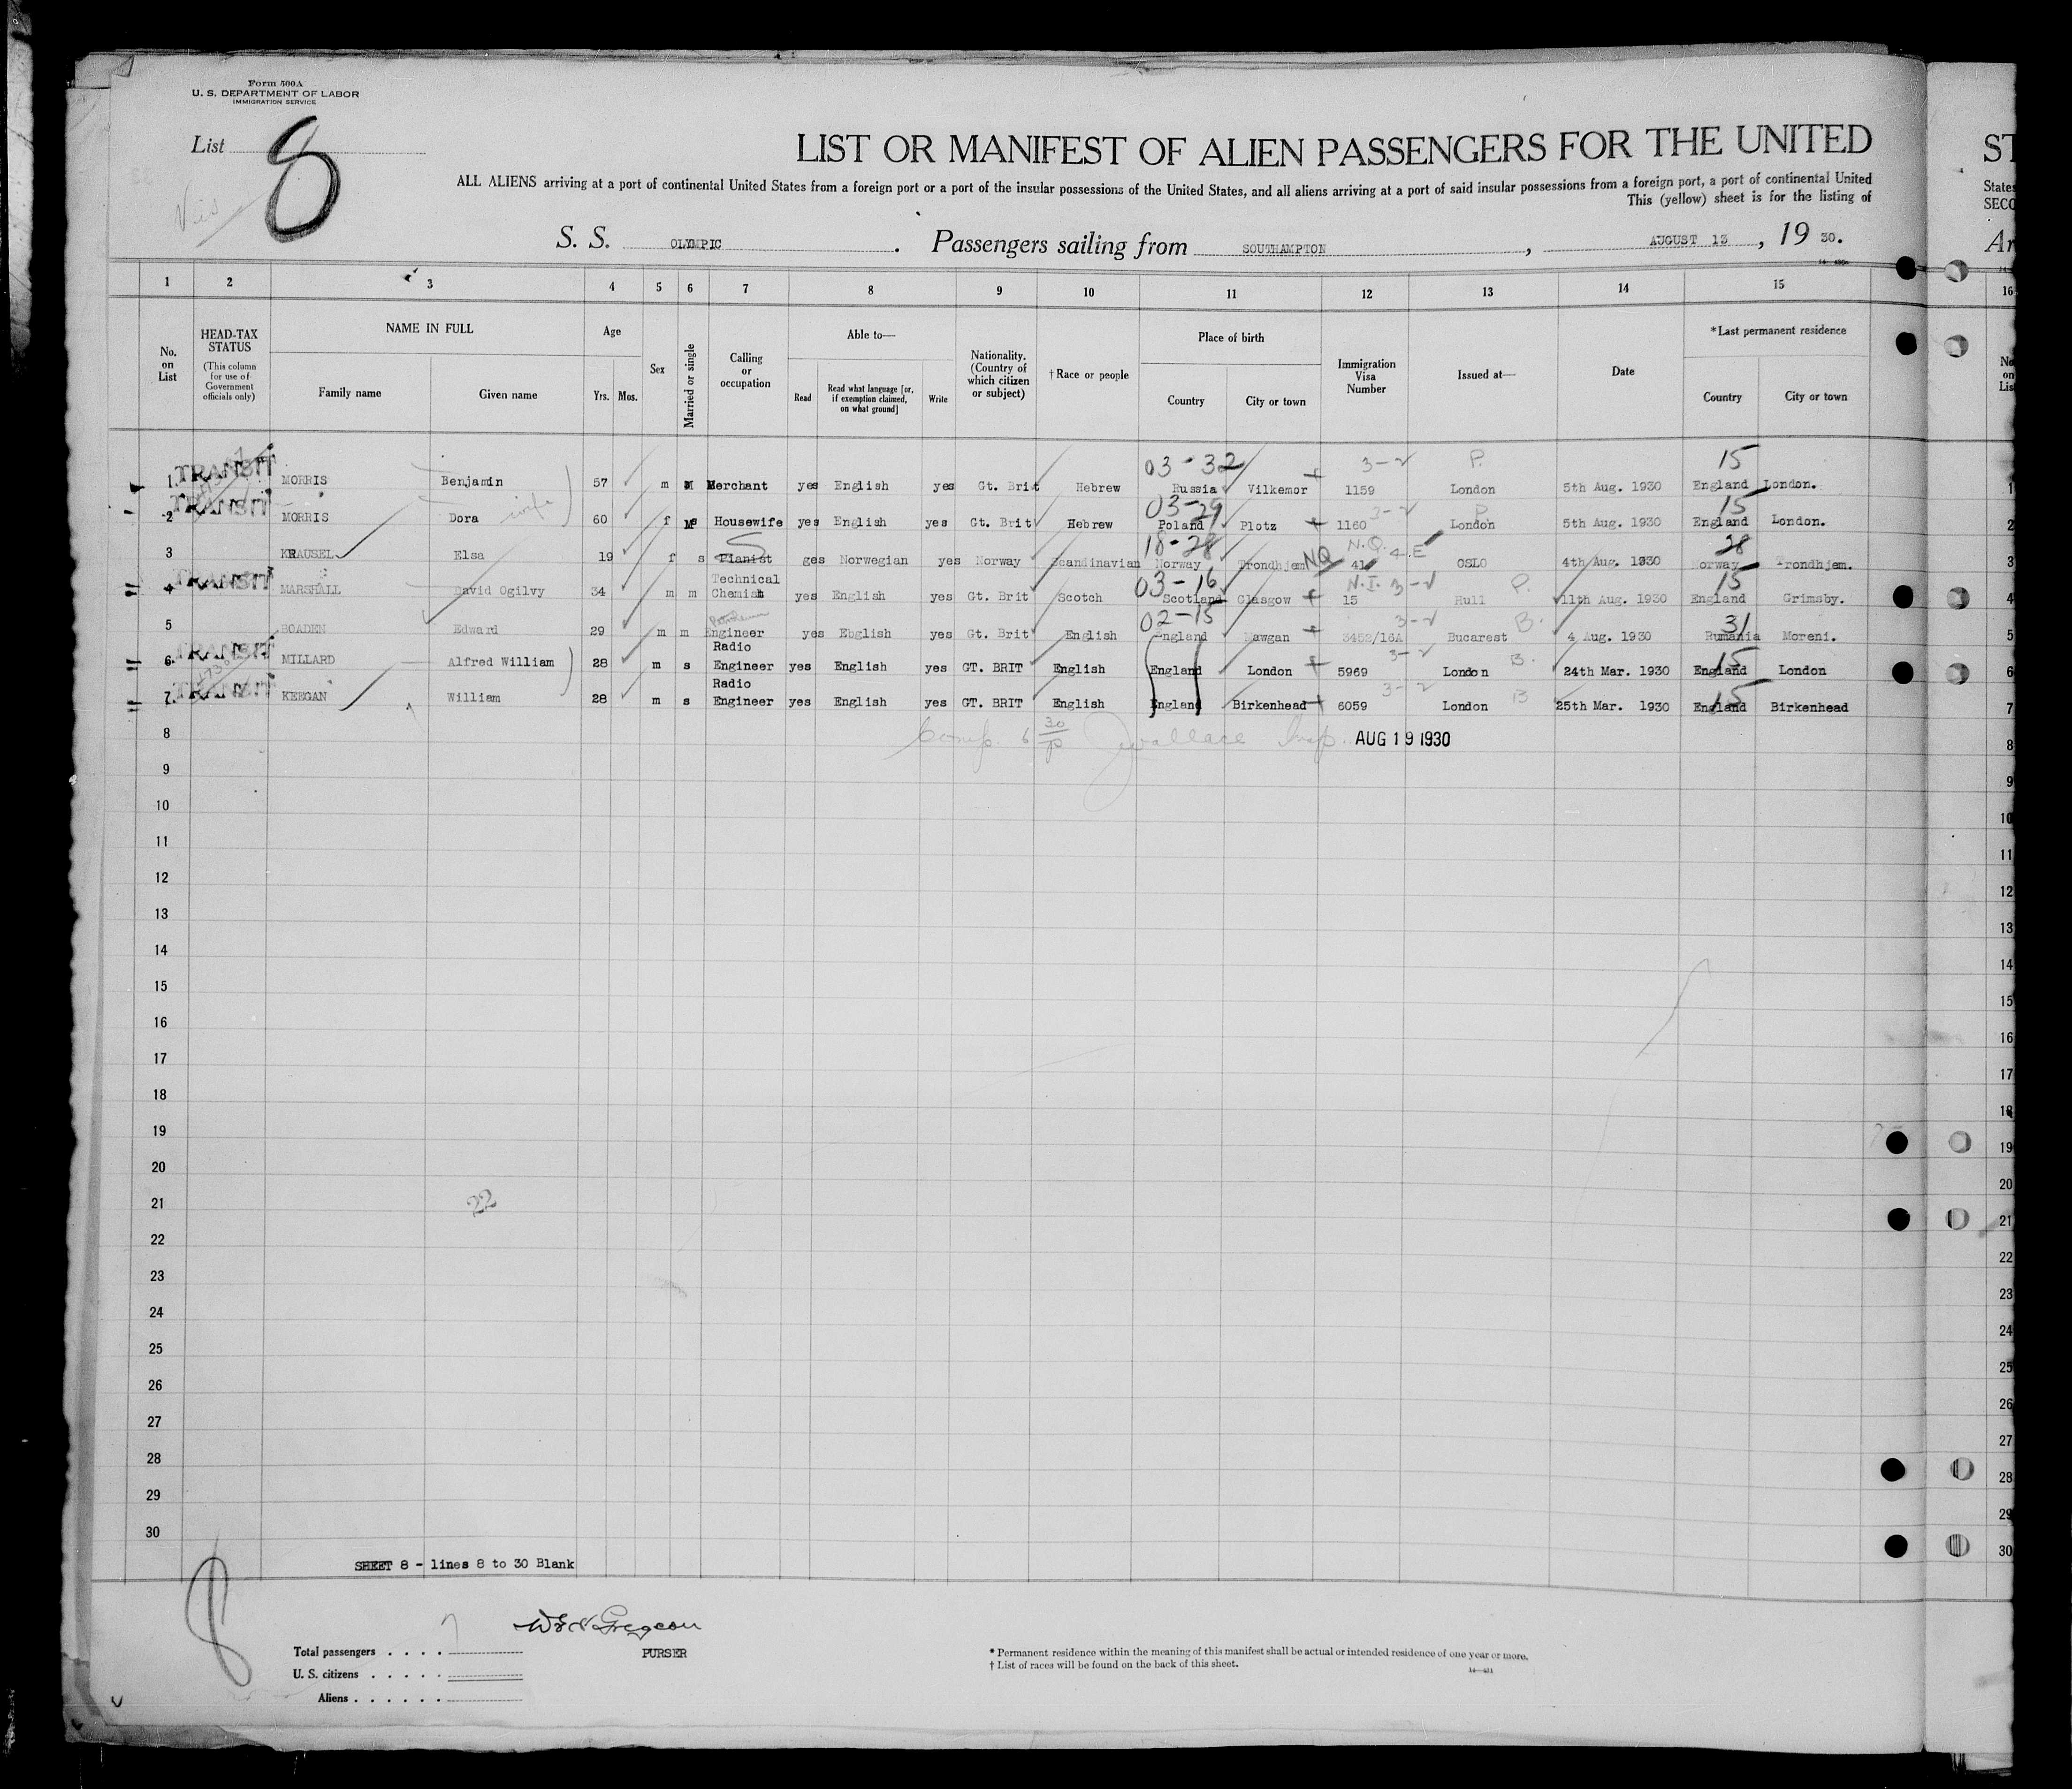 Form 500A
U. S. DEPARTMENT OF LABOR
IMMIGRATION SERVICE
List 8
LIST OR MANIFEST OF ALIEN PASSENGERS FOR THE UNITED
ST
ALL ALIENS arriving at a port of continental United States from a foreign port or a port of the insular possessions of the United States, and all aliens arriving at a port of said insular possessions from a foreign port, a port of continental United
States
This (yellow) sheet is for the listing of
SECO
S. S. OLYMPIC. Passengers sailing from SOUTHAMPTON, AUGUST 13, 19 30.
Ar
1 2 3 4 5 6 7 8 9 10 11 12 13 14 15 16
No. on List
HEAD-TAX STATUS
(This column for use of Government officials only)
NAME IN FULL
Family name Given name
Age
Yrs. Mos.
Sex
Married or single
Calling or occupation
Able to—
Read
Read what language [or, if exemption claimed, on what ground]
Write
Nationality. (Country of which citizen or subject)
†Race or people
Place of birth
Country City or town
Immigration Visa Number
Issued at—
Date
*Last permanent residence
Country City or town
No. on List
03-32 3-2 P. 15
1 TRANSIT MORRIS Benjamin 57 m M Merchant yes English yes Gt. Brit Hebrew Russia Vilkemor 1159 London 5th Aug. 1930 England London. 1
03-29 3-2 P 15
2 TRANSIT MORRIS Dora wife 60 f M Housewife yes English yes Gt. Brit Hebrew Poland Plotz 1160 London 5th Aug. 1930 England London. 2
18-28 NQ N.Q. 4.E 28
3 KRAUSEL Elsa 19 f s Pianist ges Norwegian yes Norway Scandinavian Norway Trondhjem 41 OSLO 4th Aug. 1930 Norway Trondhjem. 3
03-16 N.I. 3-2 P. 15
4 TRANSIT MARSHALL David Ogilvy 34 m m Technical Chemist yes English yes Gt. Brit Scotch Scotland Glasgow 15 Hull 11th Aug. 1930 England Grimsby. 4
02-15 3-2 B. 31
5 BOADEN Edward 29 m m Engineer yes Ebglish yes Gt. Brit English England Mawgan 3452/16A Bucarest 4 Aug. 1930 Rumania Moreni. 5
3-2 B. 15
6 TRANSIT MILLARD Alfred William 28 m s Radio Engineer yes English yes GT. BRIT English England London 5969 London 24th Mar. 1930 England London 6
3-2 B 15
7 TRANSIT KEEGAN William 28 m s Radio Engineer yes English yes GT. BRIT English England Birkenhead 6059 London 25th Mar. 1930 England Birkenhead 7
8 Comp. 6 30/p Jwallace Insp. AUG 19 1930 8
9 9
10 10
11 11
12 12
13 13
14 14
15 15
16 16
17 17
18 18
19 19
20 20
21 22 21
22 22
23 23
24 24
25 25
26 26
27 27
28 28
29 29
30 30
SHEET 8 - lines 8 to 30 Blank
8
Total passengers . . . . 7
PURSER
U. S. citizens . . . . .
Aliens . . . . . .
* Permanent residence within the meaning of this manifest shall be actual or intended residence of one year or more.
† List of races will be found on the back of this sheet.